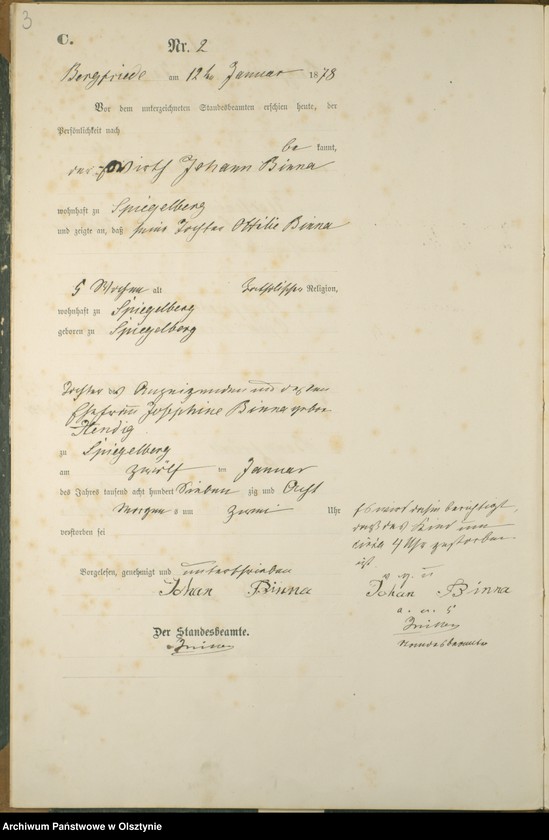 3
C.
Nr. 2
Bergfriede am 12ten Januar 1878
Vor dem unterzeichneten Standesbeamten erschien heute, der
Persönlichkeit nach
be kannt,
der Wirth Johann Binna
wohnhaft zu Spiegelberg
und zeigte an, daß seine Tochter Ottilie Binna
5 Wochen alt katholischer Religion,
wohnhaft zu Spiegelberg
geboren zu Spiegelberg
Tochter des Anzeigenden und dessen
Ehefrau Josephine Binna gebor.
zu Spiegelberg
am zwölf ten Januar
des Jahres tausend acht hundert Sieben zig und Acht
Morgens um zwei Uhr
verstorben sei
Vorgelesen, genehmigt und unterschrieben
Johan Binna
Der Standesbeamte.
Es wird dahin berichtigt,
daß das Kind um
4 Uhr gestorben
ist
v. g. u
Johan Binna
a. u. s
Standesbeamte
Archiwum Państwowe w Olsztynie